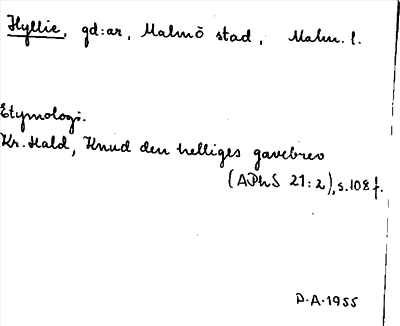 Hyllie, gd:ar, Malmö stad, Malm. l.
Etymologi.
Kr. Hald, Knud den helliges gavebrev
(APhS 21:2), s. 108 f.
D.A. 1955